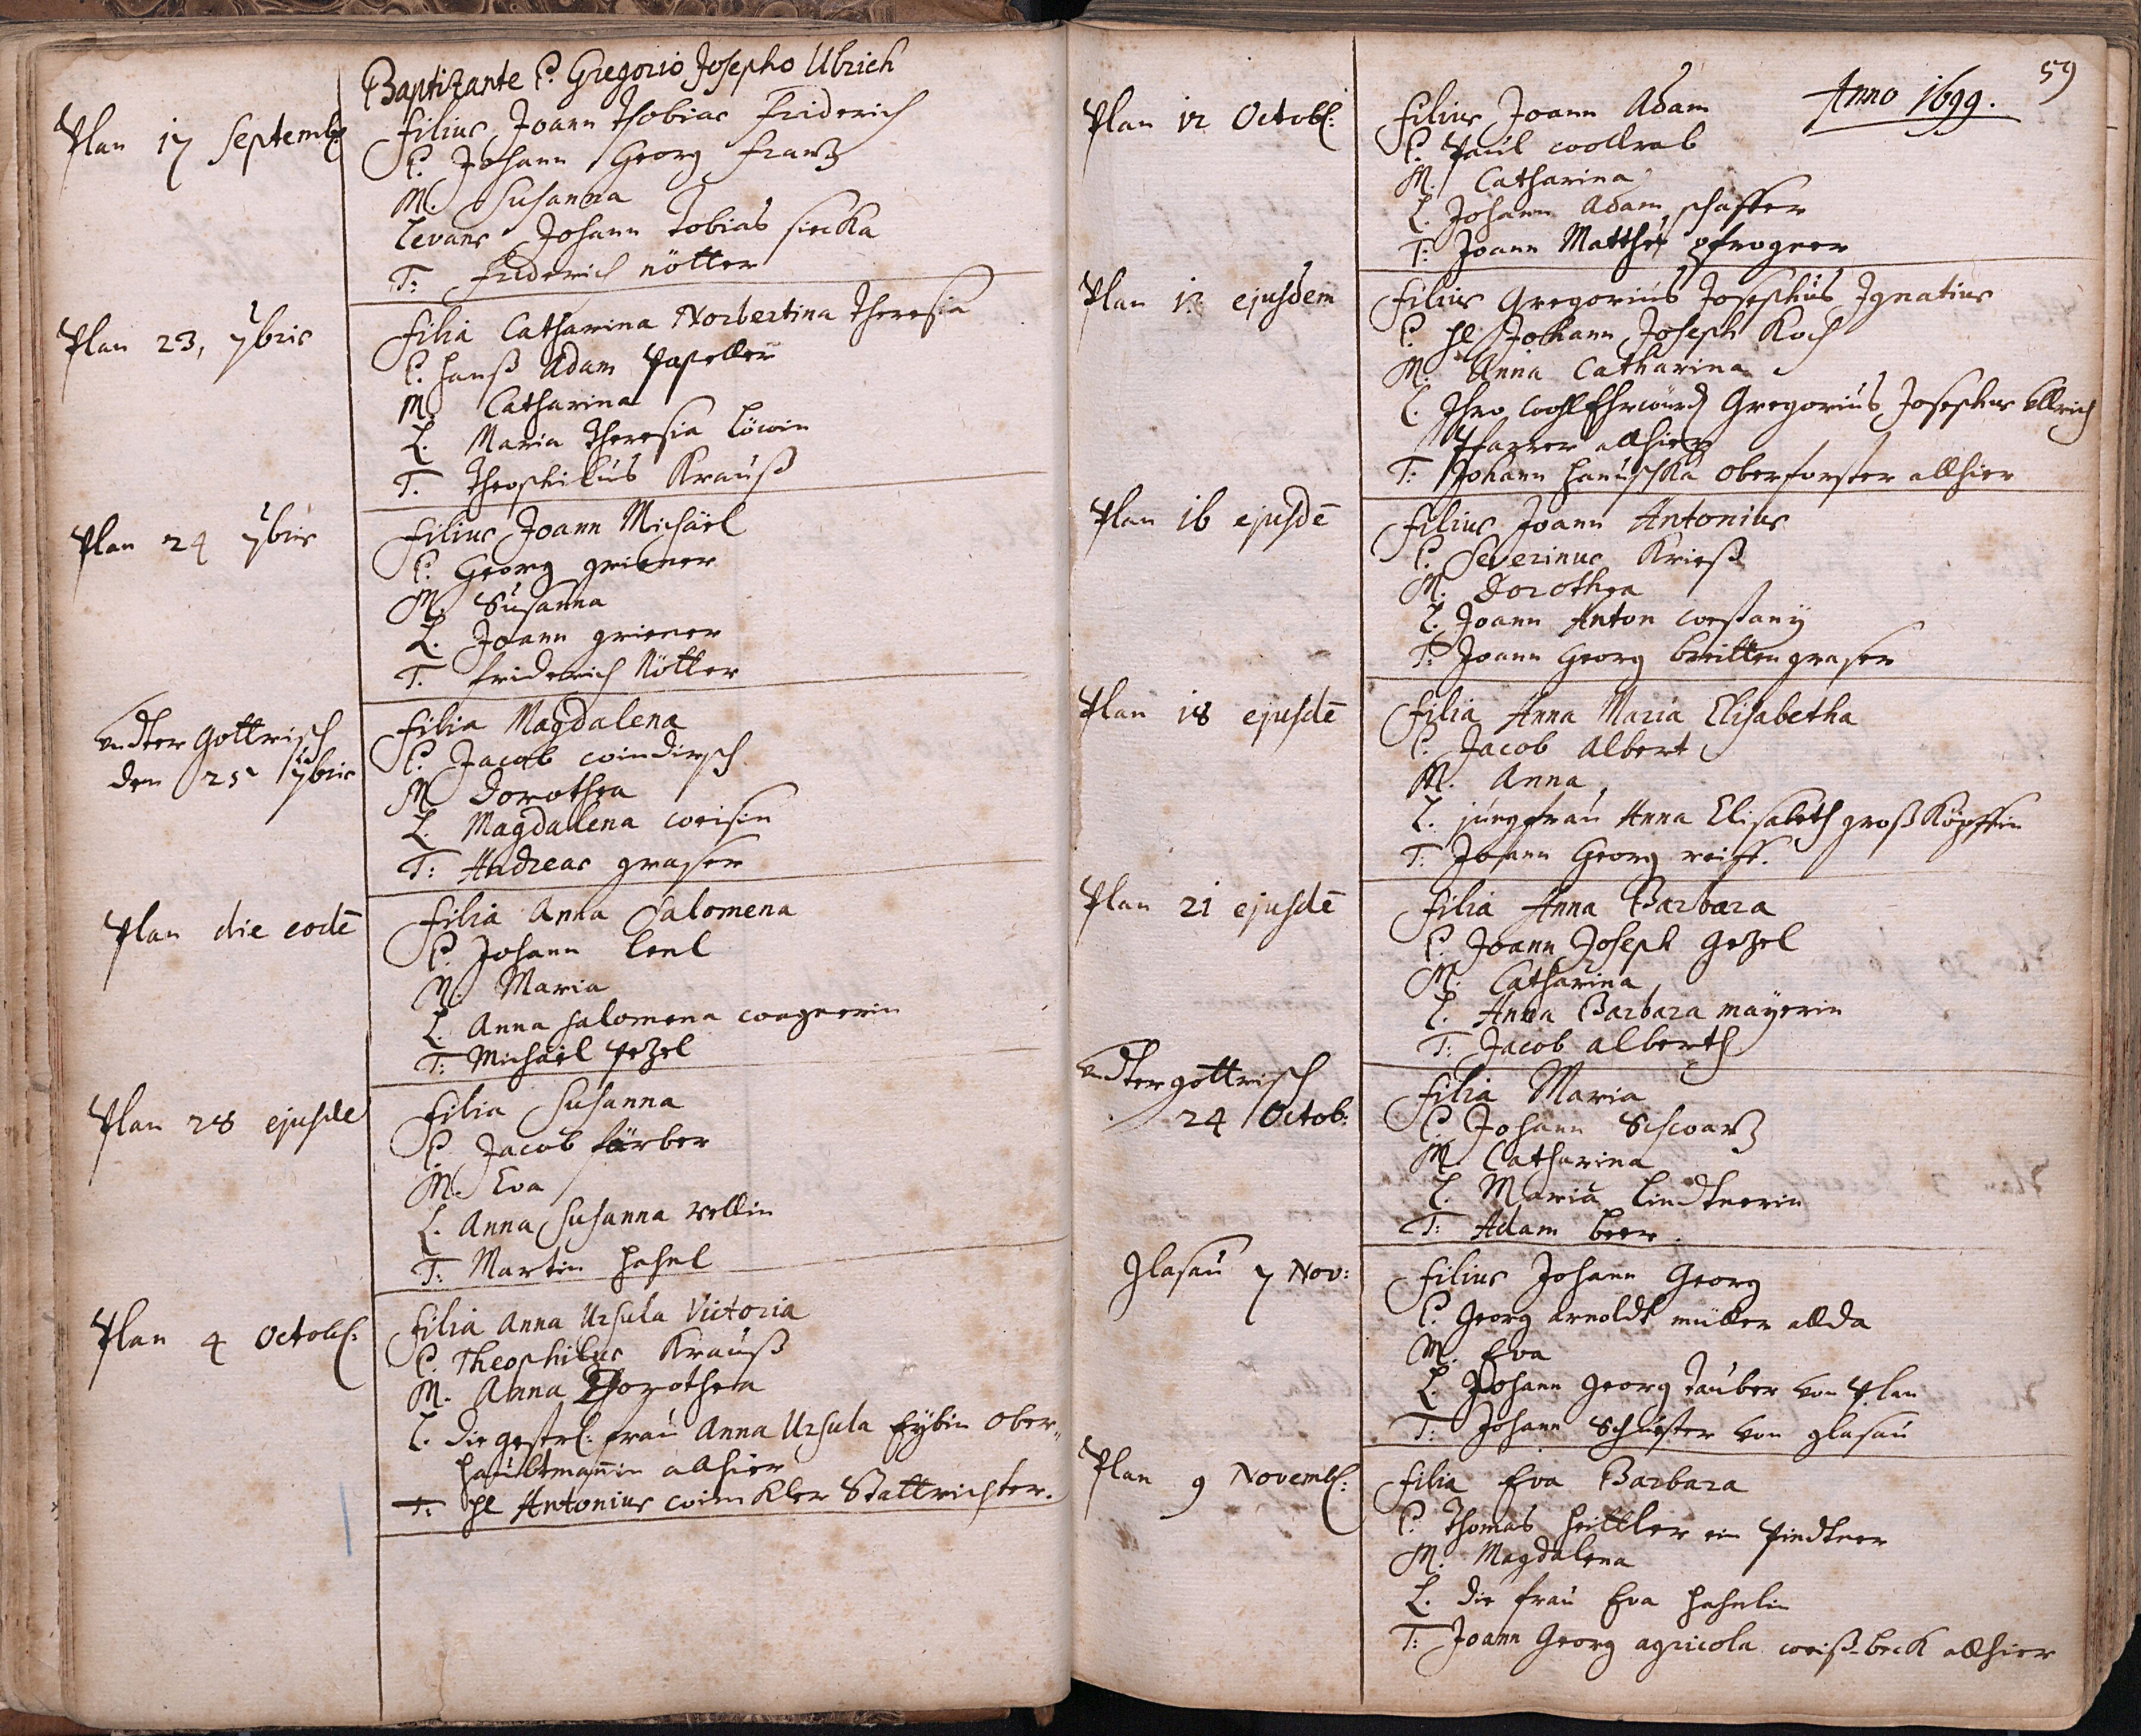 Baptizante P. Gregorio Josepho Ulrich
Plan 17 Septemb:
Filius Joann Thobias Friderich
P. Johann Georg Frantz
M. Susanna
Levans Johann Tobias
T: Friderich Nötter
Plan 23, 7bris
Filia Catharina Norbertina Theresia
P. Hanß Adam
M. Catharina
L. Maria Theresia Löwin
T. Theophilus Krauß
Plan 24 7bris
Filius Joann Michäel
P. Georg Griener
M. Susanna
L. Joann Griener
T. Friderich Nötter
Undter Gottrisch
den 25 7bris
Filia Magdalena
P. Jacob Windirsch
M. Dorothea
L. Magdalena Weisin
T: Andreas Graser
Plan die eodē
Filia Anna Salomena
P. Johann Lenl
M. Maria
L. Anna Salomena Wagnerin
T: Michäel Petzel
Plan 28 ejusdē
Filia Susanna
P. Jacob Färber
M. Eva
L. Anna Susanna
T: Martin Hahnl
Plan 4 Octob:
Filia Anna Ursula Victoria
P. Theophilus Krauß
M. Anna Dhorothea
L. die gestrl: Frau Anna Ursula Eybin Ober„
haubtmannin alhier
T: Hl Antonius Winkler Stattrichter.
59
Anno 1699.
Plan 12 Octob:
Filius Joann Adam
P. Paul Wollrab
M. Catharina
L. Johann Adam Schaffer
T: Joann Matthes Pfrogner
Plan 12 ejusdem
Filius Gregorius Josephus Ignatius
P. Hl Johann Joseph Koch
M. Anna Catharina
L. Ihro Wohl Ehrwürd Gregorius Josephus Ullrich
Pfarrer allhier
T: Johann Hanuschka Oberforster allhier
Plan 16 ejusdē
Filius Joann Antonius
P. Severinus Krieß
M. Dorothea
L. Joann Anton
T: Joann Georg Breittengraser
Plan 18 ejusdē
Filia Anna Maria Elisabetha
P. Jacob Albert
M. Anna
L. Jungfrau Anna Elisabeth Großköpffin
T: Johann Georg Reiff.
Plan 21 ejusdē
Filia Anna Barbara
P. Joann Joseph Getzel
M. Catharina
L. Anna Barbara Mayerin
T: Jacob Alberth
Undter Gottrisch
24 Octob:
Filia Maria
P. Johann Schwartz
M. Catharina
L. Maria Lindtnerin
T: Adam Beer.
Glasau 7 Nov:
Filius Johann Georg
P. Georg Arnoldt müller allda
M. Eva
L. Johann Georg Tauber von Plan
T: Johann Schuster von Glasau
Plan 9 Novemb:
Filia Eva Barbara
P. Thomas Heittler ein
M. Magdalena
L. die Frau Eva Hahnlin
T: Joann Georg Agricola weiß-beck allhier